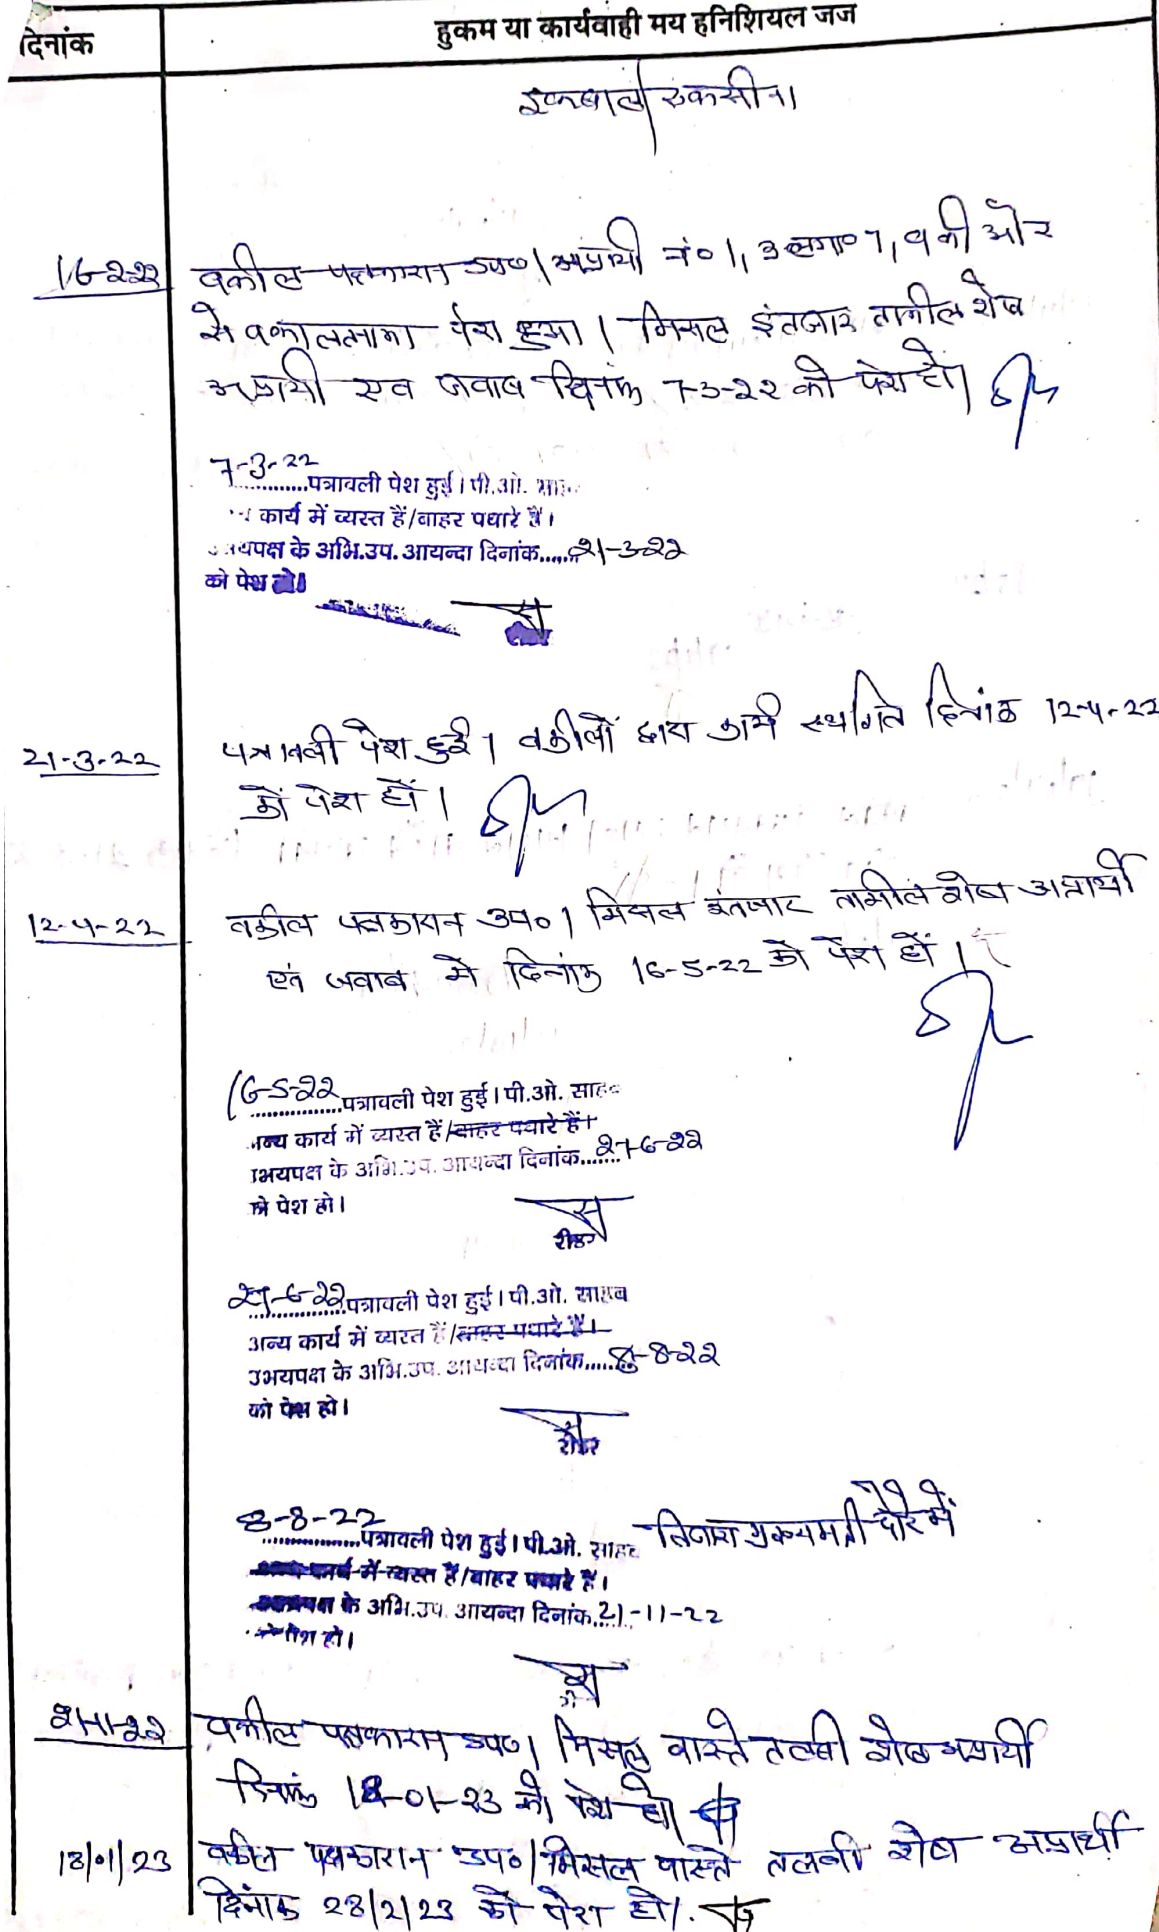 दिनांक
हुकम या कार्यवाही मय हनिशियल जज
इकबाल/रुकसीना
16-2-22
वकील पक्षकारान उप०। अप्रार्थी नं० 1, 3 लगा० 7, 9 की ओर
से वकालतनामा पेश हुआ। मिसल इंतजार तामील शेष
अप्रार्थी एवं जवाब दिनांक 7-3-22 को पेश हो।
7-3-22
............पत्रावली पेश हुई। पी.ओ.
कार्य में व्यस्त हैं/बाहर पधारे हैं।
यपक्ष के अभि.उप. आयन्दा दिनांक......21-3-22
को पेश हो।
21-3-22
पत्रावली पेश हुई। वकीलों द्वारा कार्य स्थगित दिनांक 12-4-22
को पेश हों।
12-4-22
वकील पक्षकारान उप०। मिसल इंतजार तामील शेष अप्रार्थी
एवं जवाब में दिनांक 16-5-22 को पेश हों।
16-5-22
...............पत्रावली पेश हुई। पी.ओ. साह
न्य कार्य में व्यस्त हैं/बाहर पधारे हैं।
भयपक्ष के अभि.उप. आयन्दा दिनांक.......21-6-22
को पेश हो।
रीडर
21-6-22
...............पत्रावली पेश हुई। पी.ओ. साहब
अन्य कार्य में व्यस्त हैं/बाहर पधारे हैं।
उभयपक्ष के अभि.उप. आयन्दा दिनांक......8-8-22
को पेश हो।
रीडर
8-8-22
...............पत्रावली पेश हुई। पी.ओ. साहब तिजारा मुख्यमंत्री दौरे में
कार्य में व्यस्त हैं/बाहर पधारे हैं।
के अभि.उप. आयन्दा दिनांक 21-11-22
पेश हो।
21-11-22
वकील पक्षकारान उप०। मिसल वास्ते तलबी शेष अप्रार्थी
दिनांक 18-01-23 को पेश हो।
18/01/23
वकील पक्षकारान उप०। मिसल वास्ते तलबी शेष अप्रार्थी
दिनांक 28/2/23 को पेश हो।